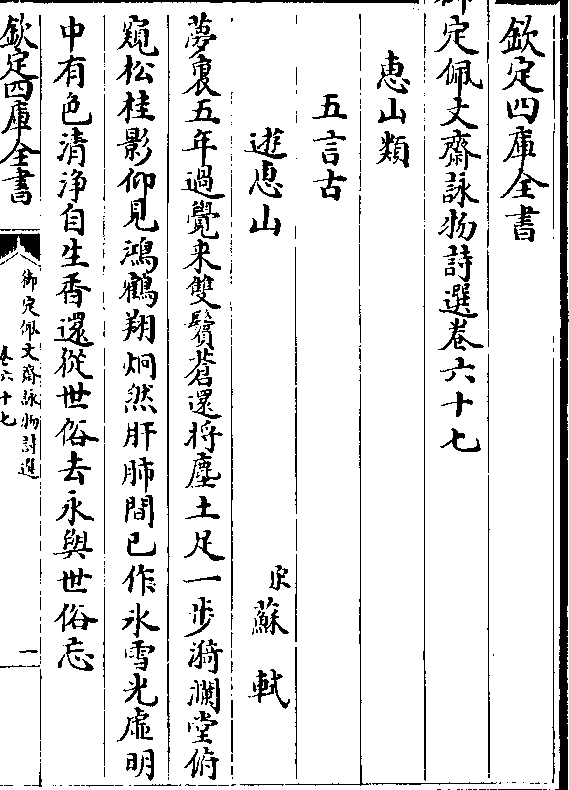 欽定四庫全書
御定佩文齋詠物詩選卷六十七
惠山類
五言古
遊惠山
宋蘇軾
夢裏五年過覺來雙鬢蒼還將塵土足一步漪瀾堂俯
窺松桂影仰見鴻鶴翔炯然肝肺間已作冰雪光虛明
中有色清淨自生香還從世俗去永與世俗忘
欽定四庫全書
御定佩文齋詠物詩選
卷六十七
一